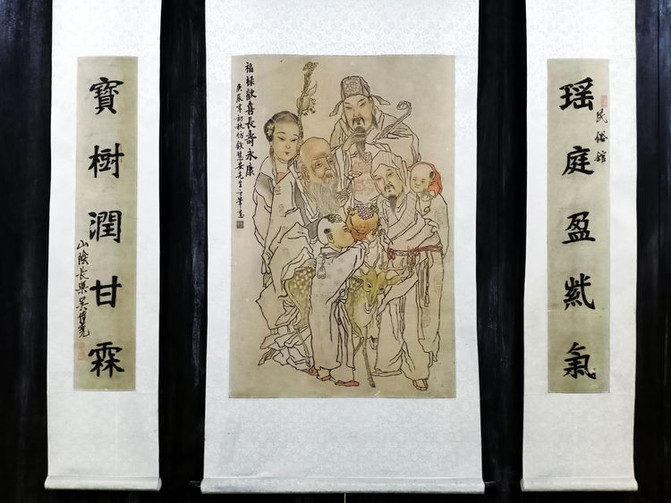 瑶庭盈紫氣
民俗館
福祿歡喜長壽永康
庚辰年初秋仿錢慧安先生之筆意
寶樹潤甘霖
山陰長樂吳